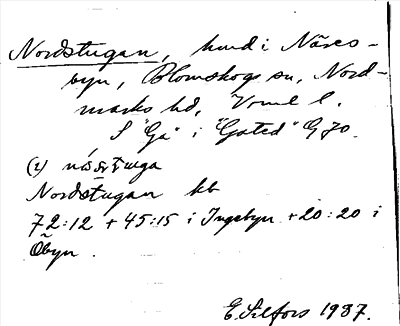 Nordstugan, hmd i Näres-
byn, Blomskogs sn, Nord-
marks hd, Vrml l.
S "Ga" i "Gsted" G 70.
(1)
Nordstugan kb
72:12 + 45:15 i Ingebyn + 20:20 i
Öbyn.
E. Silfors 1937.